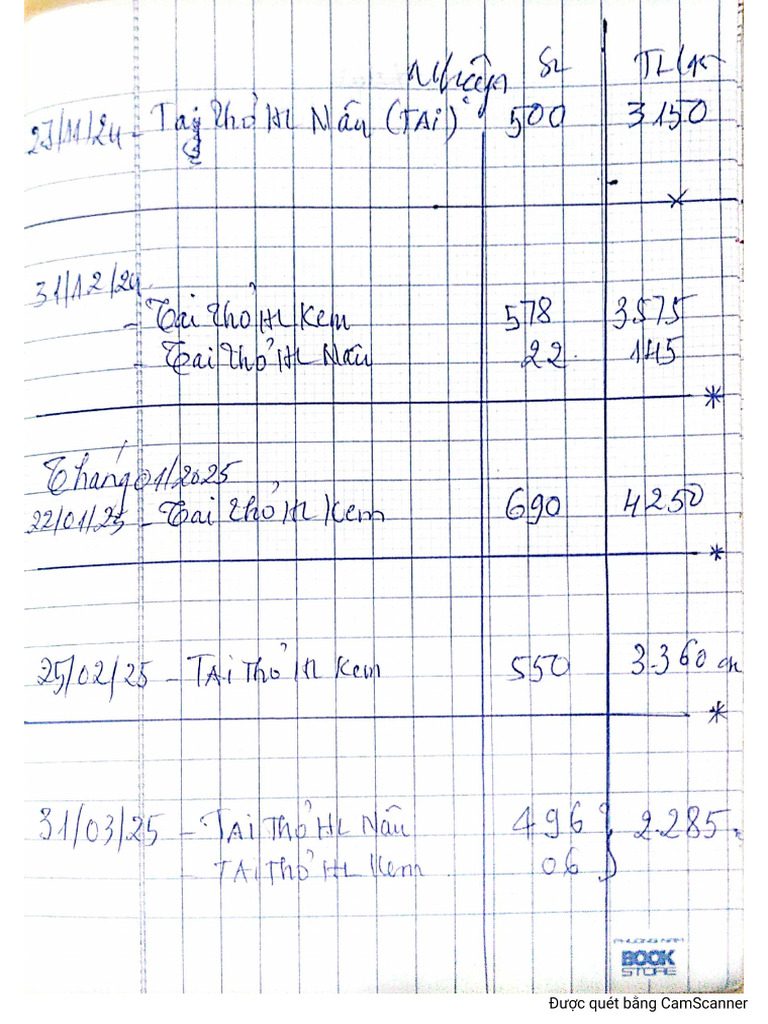 Nhuyện SL TL(gr
23/11/24 - Tai Thỏ HL Nâu (TAi) 500 3150
31/12/24
- Tai Thỏ HL Kem 578 3575
- Tai Thỏ HL Nâu 22 145
Tháng 01/2025
22/01/25 - Tai Thỏ HL Kem 690 4250
25/02/25 - TAi Thỏ HL Kem 550 3.360
31/03/25 - TAi Thỏ HL Nâu 496 2.285
- TAi Thỏ HL Kem 06
PHUONG NAM
BOOK
STORE
Được quét bằng CamScanner